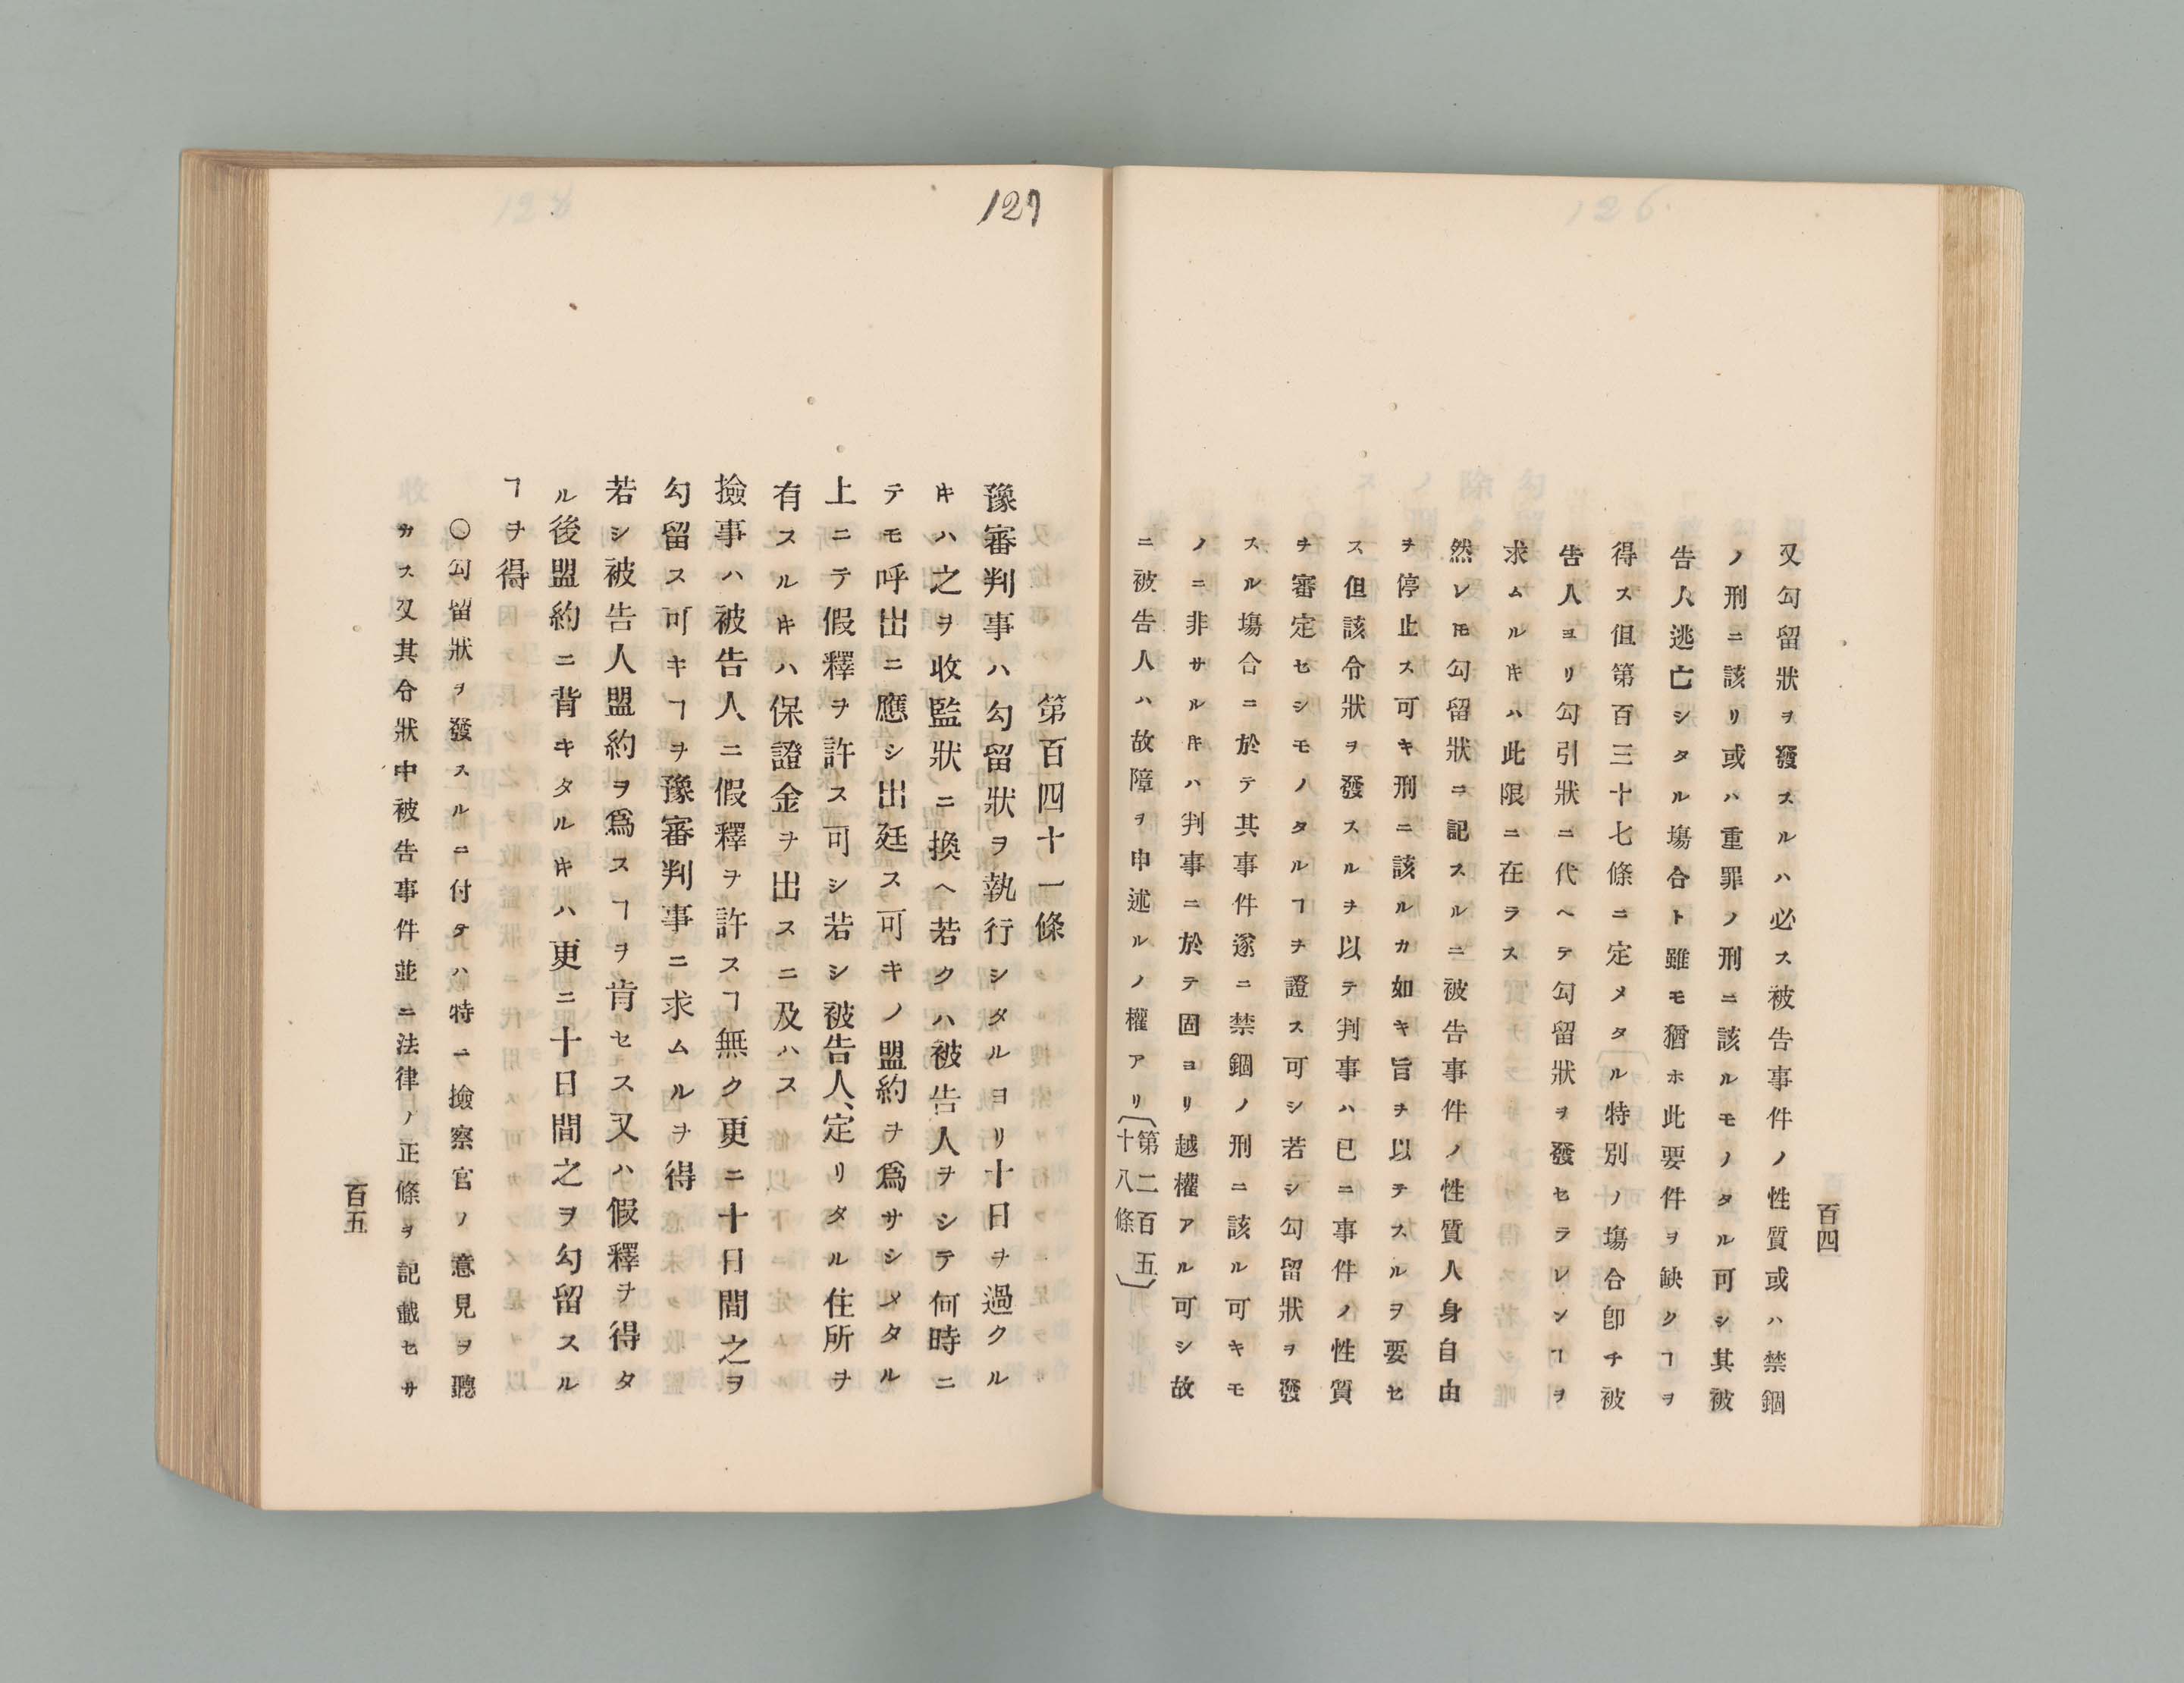 百四
又勾留狀ヲ發スルハ必ス被告事件ノ性質或ハ禁錮
ノ刑ニ該リ或ハ重罪ノ刑ニ該ルモノタル可シ其被
告人逃亡シタル塲合ト雖モ猶ホ此要件ヲ缺クヿヲ
得ス但第百三十七條ニ定メタル特別ノ塲合卽チ被
告人ヨリ勾引狀ニ代ヘテ勾留狀ヲ發セラレンヿヲ
求ムルキハ此限ニ在ラス
然レ𪜈勾留狀ニ記スルニ被告事件ノ性質人身自由
ヲ停止ス可キ刑ニ該ルカ如キ旨ヲ以テスルヲ要セ
ス但該令狀ヲ發スルヲ以テ判事ハ已ニ事件ノ性質
ヲ審定セシモノタルヿヲ證ス可シ若シ勾留狀ヲ發
スル塲合ニ於テ其事件遂ニ禁錮ノ刑ニ該ル可キモ
ノニ非サルキハ判事ニ於テ固ヨリ越權アル可シ故
ニ被告人ハ故障ヲ申述ルノ權アリ〔第二百五十八條〕
127
第百四十一條
豫審判事ハ勾留狀ヲ執行シタルヨリ十日ヲ過クル
キハ之ヲ收監狀ニ換ヘ若クハ被告人ヲシテ何時ニ
テモ呼出ニ應シ出廷ス可キノ盟約ヲ爲サシメタル
上ニテ假釋ヲ許ス可シ若シ被告人、定リタル住所ヲ
有スルキハ保證金ヲ出スニ及ハス
撿事ハ被告人ニ假釋ヲ許スヿ無ク更ニ十日間之ヲ
勾留ス可キヿヲ豫審判事ニ求ムルヲ得
若シ被告人盟約ヲ爲スヿヲ肯セス又ハ假釋ヲ得タ
ル後盟約ニ背キタルキハ更ニ十日間之ヲ勾留スル
ヿヲ得
〇勾留狀ヲ發スルニ付テハ特ニ撿察官ノ意見ヲ聽
カス又其令狀中被告事件並ニ法律ノ正條ヲ記載セサ
百五